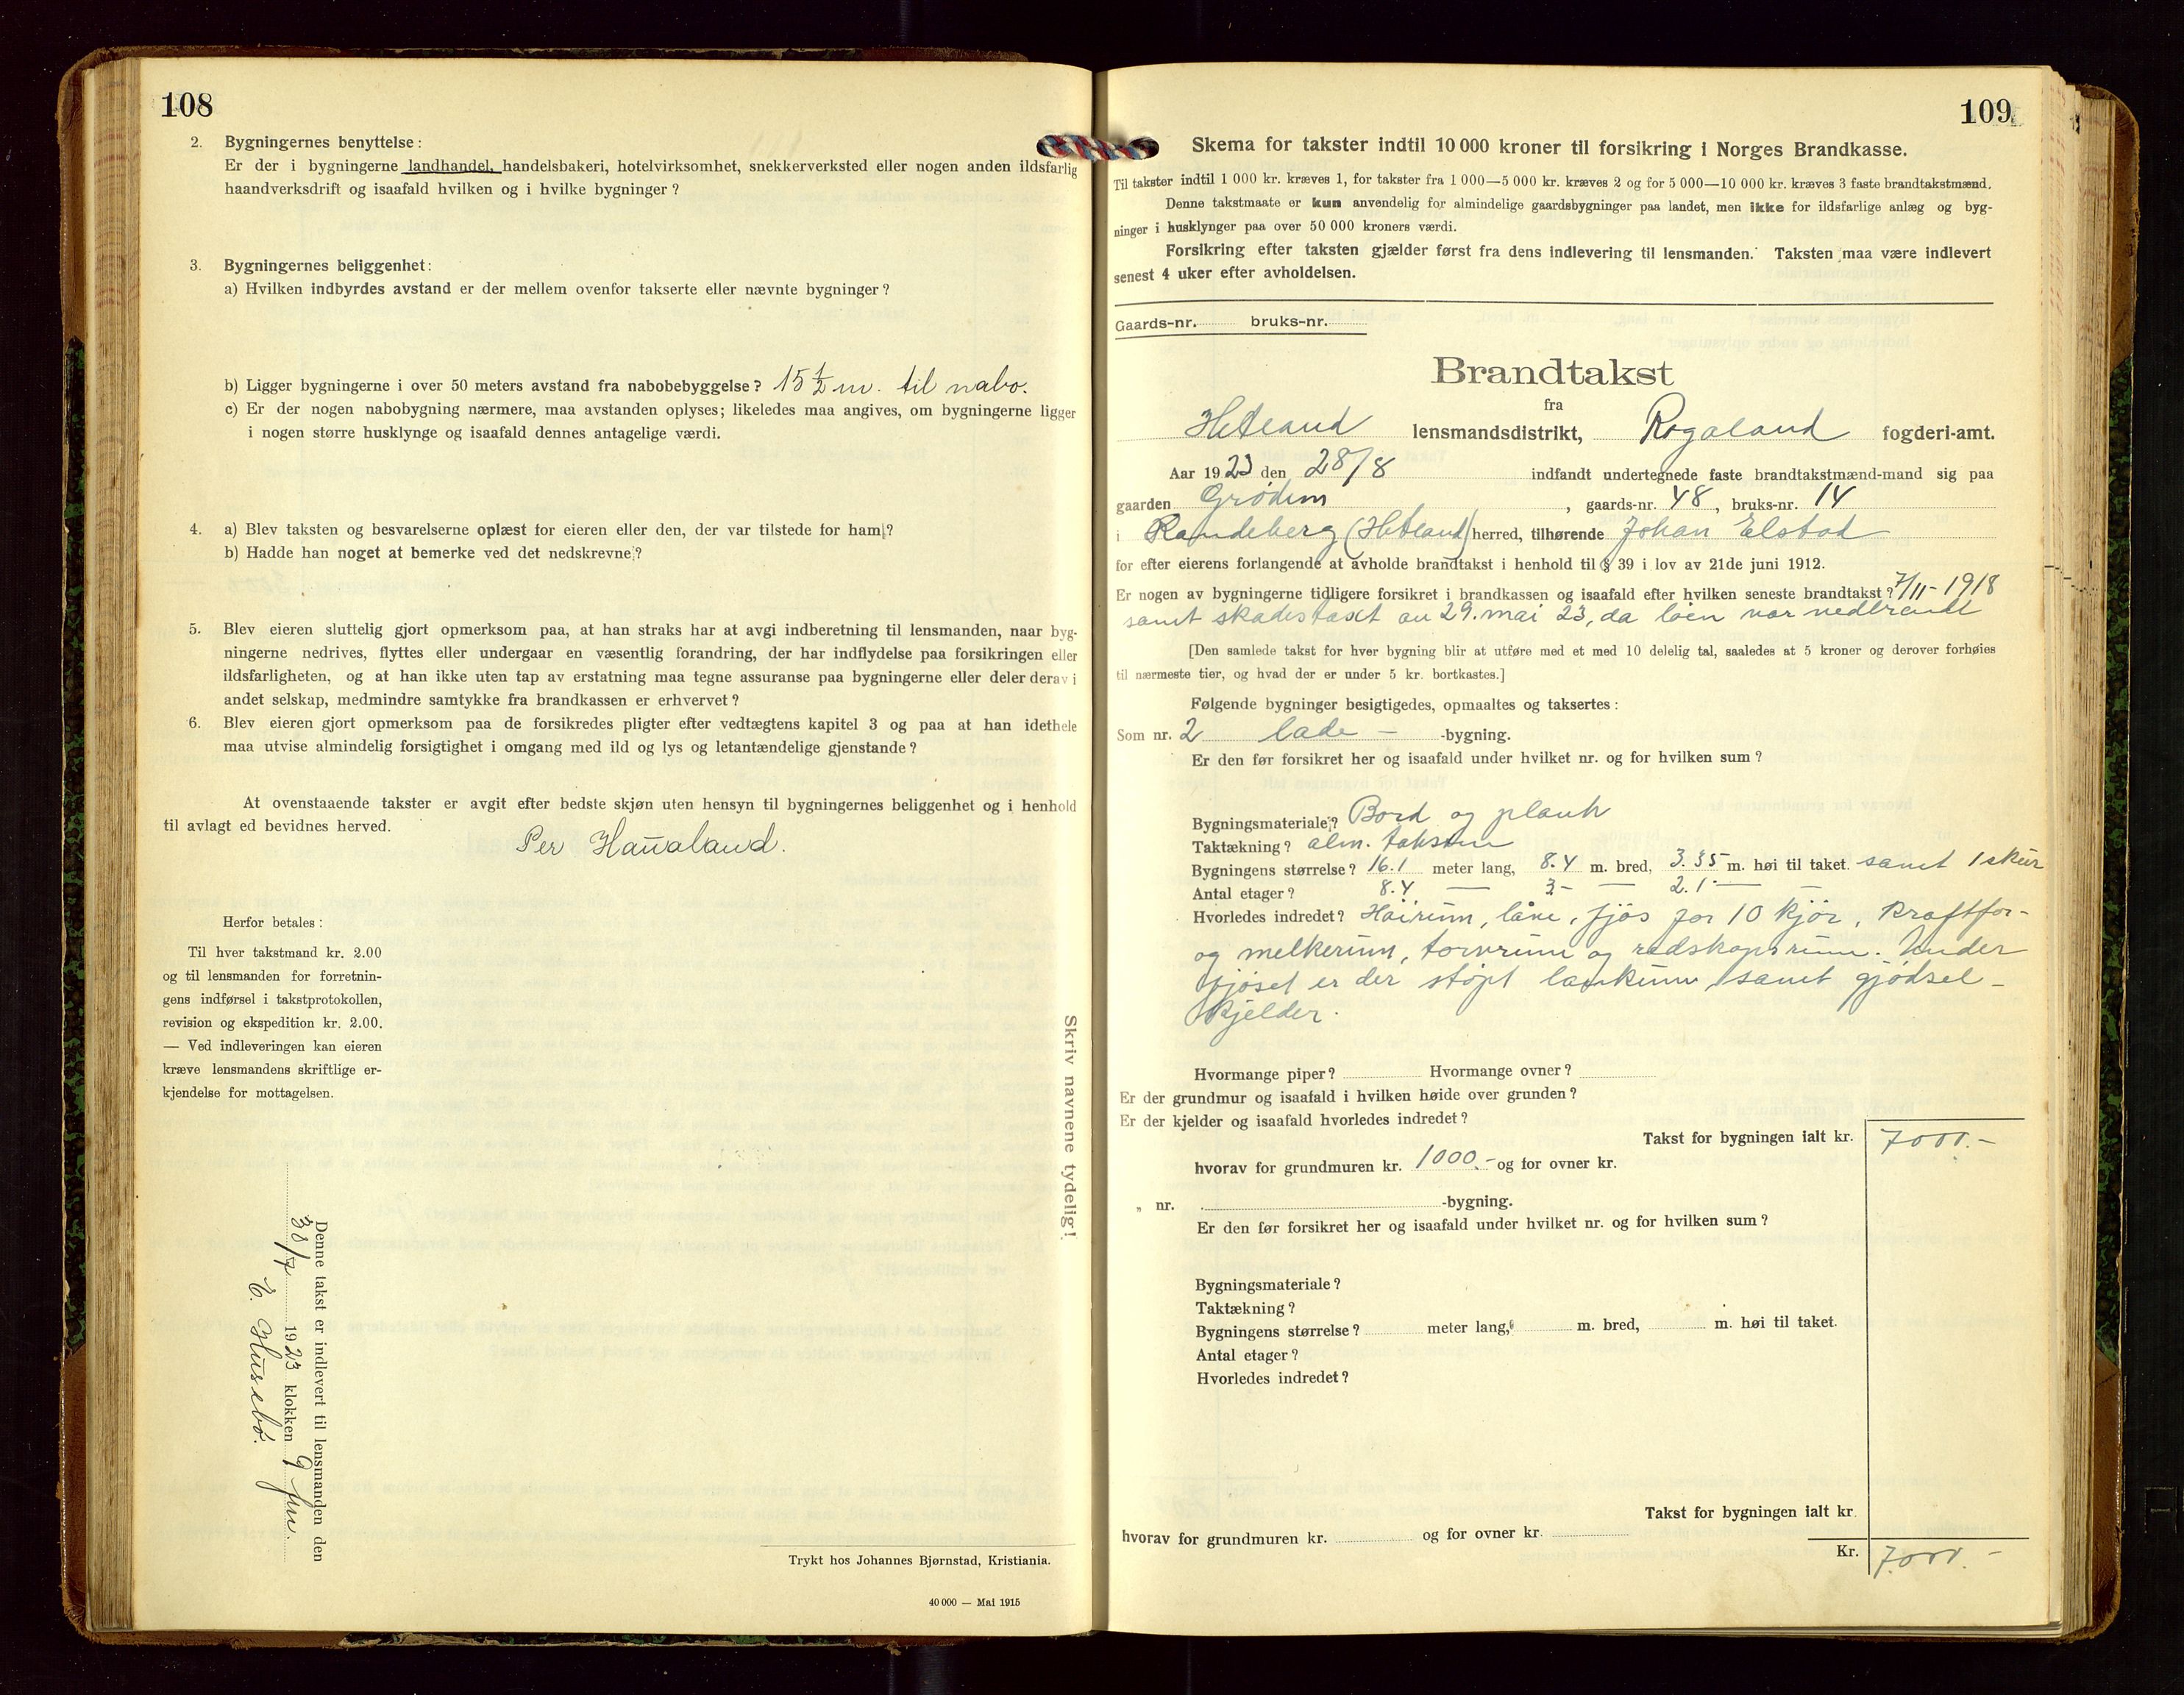 108
2. Bygningernes benyttelse:
Er der i bygningerne landhandel, handelsbakeri, hotelvirksomhet, snekkerverksted eller nogen anden ildsfarlig
haandverksdrift og isaafald hvilken og i hvilke bygninger?
3. Bygningernes beliggenhet:
a) Hvilken indbyrdes avstand er der mellem ovenfor takserte eller nævnte bygninger?
b) Ligger bygningerne i over 50 meters avstand fra nabobebyggelse? 15 1/2 m. til nabo.
c) Er der nogen nabobygning nærmere, maa avstanden oplyses; likeledes maa angives, om bygningerne ligger
i nogen større husklynge og isaafald dennes antagelige værdi.
4. a) Blev taksten og besvarelserne oplæst for eieren eller den, der var tilstede for ham?
b) Hadde han noget at bemerke ved det nedskrevne?
5. Blev eieren sluttelig gjort opmerksom paa, at han straks har at avgi indberetning til lensmanden, naar byg-
ningerne nedrives, flyttes eller undergaar en væsentlig forandring, der har indflydelse paa forsikringen eller
ildsfarligheten, og at han ikke uten tap av erstatning maa tegne assuranse paa bygningerne eller deler derav i
andet selskap, medmindre samtykke fra brandkassen er erhvervet?
6. Blev eieren gjort opmerksom paa de forsikredes pligter efter vedtægtens kapitel 3 og paa at han idethele
maa utvise almindelig forsigtighet i omgang med ild og lys og letantændelige gjenstande?
At ovenstaaende takster er avgit efter bedste skjøn uten hensyn til bygningernes beliggenhet og i henhold
til avlagt ed bevidnes herved.
Per Haualand.
Herfor betales:
Til hver takstmand kr. 2.00
og til lensmanden for forretnin-
gens indførsel i takstprotokollen,
revision og ekspedition kr. 2.00.
— Ved indleveringen kan eieren
kræve lensmandens skriftlige er-
kjendelse for mottagelsen.
Denne takst er indlevert til lensmanden den
30/7 1923 klokken 9 fm.
E. Husebö.
Skriv navnene tydelig!
Trykt hos Johannes Bjørnstad, Kristiania.
40 000 — Mai 1915
109
Skema for takster indtil 10 000 kroner til forsikring i Norges Brandkasse.
Til takster indtil 1 000 kr. kræves 1, for takster fra 1 000—5 000 kr. kræves 2 og for 5 000—10 000 kr. kræves 3 faste brandtakstmænd.
Denne takstmaate er kun anvendelig for almindelige gaardsbygninger paa landet, men ikke for ildsfarlige anlæg og byg-
ninger i husklynger paa over 50 000 kroners værdi.
Forsikring efter taksten gjælder først fra dens indlevering til lensmanden. Taksten maa være indlevert
senest 4 uker efter avholdelsen.
Gaards-nr. bruks-nr.
Brandtakst
fra
Hetland lensmandsdistrikt, Rogaland fogderi-amt.
Aar 1923 den 28/8 indfandt undertegnede faste brandtakstmænd-mand sig paa
gaarden Grödem, gaards-nr. 48, bruks-nr. 14
i Randeberg (Hetland) herred, tilhørende Johan Elstad
for efter eierens forlangende at avholde brandtakst i henhold til § 39 i lov av 21de juni 1912.
Er nogen av bygningerne tidligere forsikret i brandkassen og isaafald efter hvilken seneste brandtakst? 7/11-1918
samt skadestaxt au 29. mai 23, da löen var nedbrændt
[Den samlede takst for hver bygning blir at utføre med et med 10 delelig tal, saaledes at 5 kroner og derover forhøies
til nærmeste tier, og hvad der er under 5 kr. bortkastes.]
Følgende bygninger besigtigedes, opmaaltes og taksertes:
Som nr. 2 lade - -bygning.
Er den før forsikret her og isaafald under hvilket nr. og for hvilken sum?
Bygningsmateriale? Bord og plank
Taktækning? alm. taksten
Bygningens størrelse? 16.1 meter lang, 8.4 m. bred, 3.35 m. høi til taket. samt 1 skur
Antal etager? 8.4 — 3 - — 2.1 — —
Hvorledes indredet? Höirum, låve, fjös for 10 kjör, kraftfor-
og melkerum, torvrum og redskapsrum. Under
fjöset er der stöpt lankum, samt gjödsel-
kjelder.
Hvormange piper? Hvormange ovner?
Er der grundmur og isaafald i hvilken høide over grunden?
Er der kjelder og isaafald hvorledes indredet?
Takst for bygningen ialt kr. 7000.-
hvorav for grundmuren kr. 1000.- og for ovner kr.
„ nr. -bygning.
Er den før forsikret her og isaafald under hvilket nr. og for hvilken sum?
Bygningsmateriale?
Taktækning?
Bygningens størrelse? meter lang, m. bred, m. høi til taket.
Antal etager?
Hvorledes indredet?
Takst for bygningen ialt kr.
hvorav for grundmuren kr. og for ovner kr.
Kr. 7.000.-